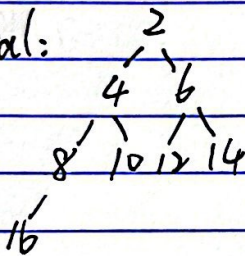 al: 2
4 6
8 10 12 14
16